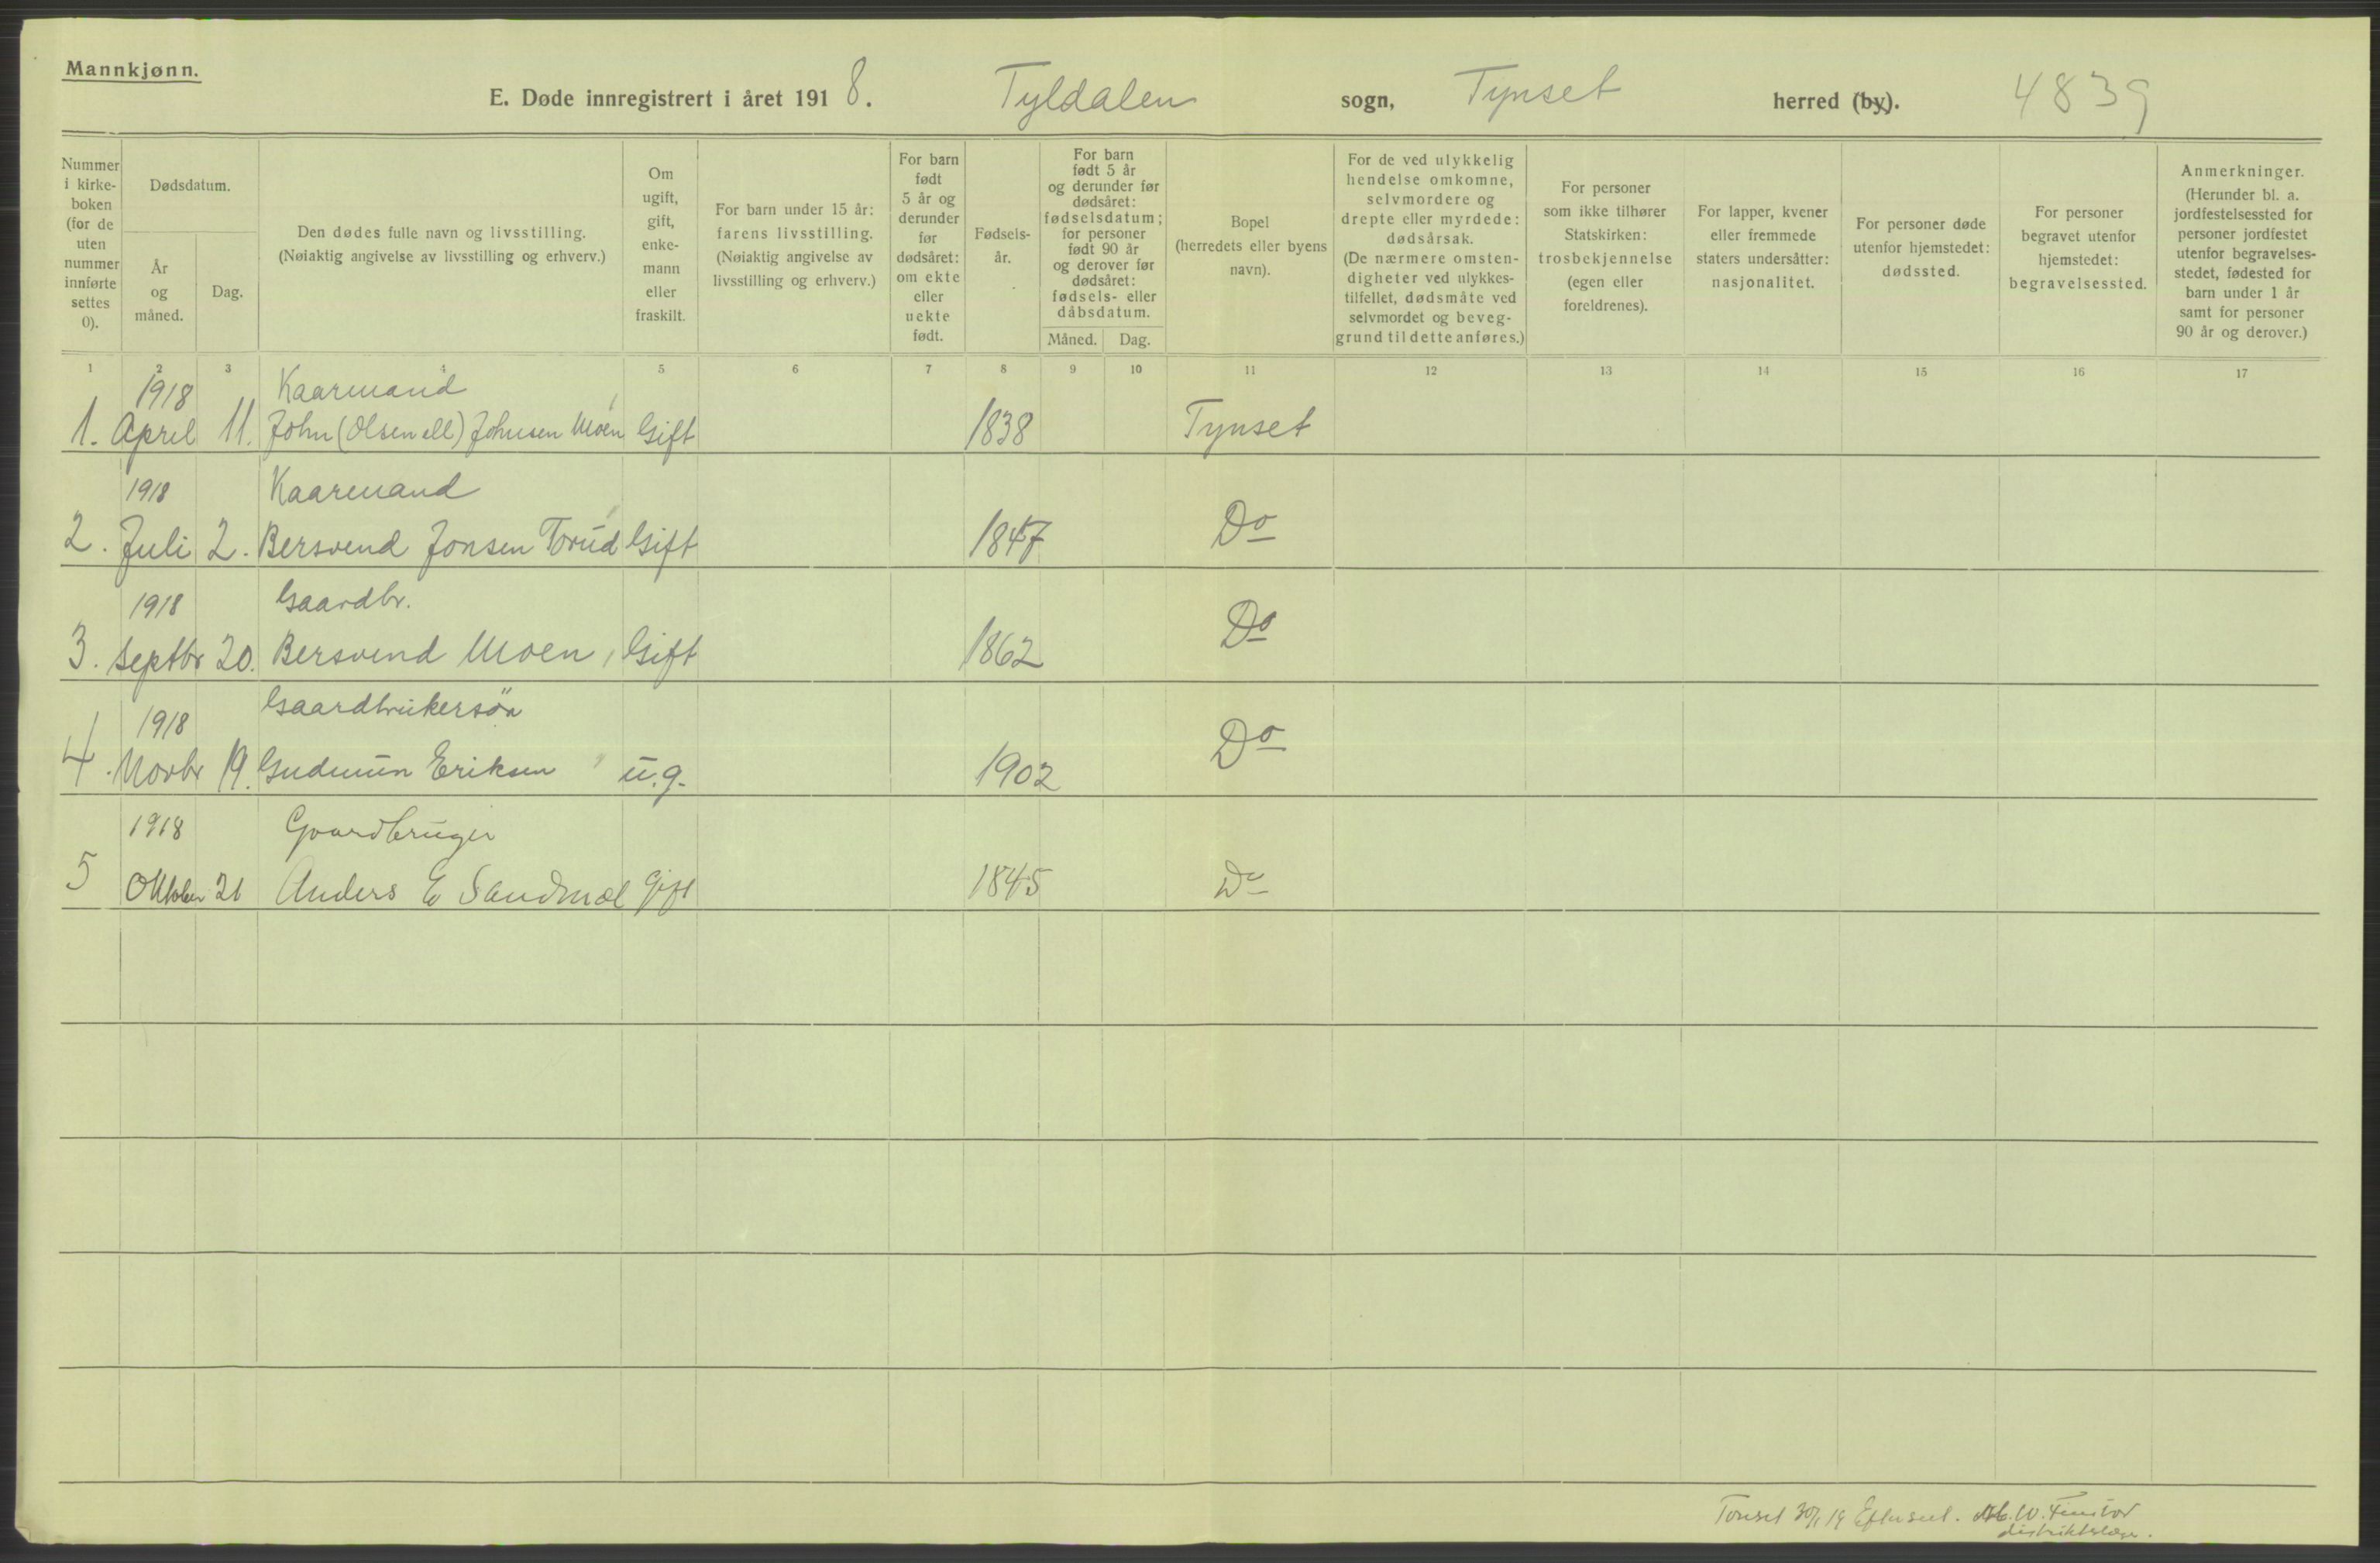 Mannkjønn.
E. Døde innregistrert i året 1918. Tyldalen sogn, Tynset herred (by). 4839
Nummer
i kirke-
boken
(for de
uten
nummer
innførte
settes
0).
Dødsdatum.
År
og
måned.
Dag.
Den dødes fulle navn og livsstilling.
(Nøiaktig angivelse av livsstilling og erhverv.)
Om
ugift,
gift,
enke-
mann
eller
fraskilt.
For barn under 15 år:
farens livsstilling.
(Nøiaktig angivelse av
livsstilling og erhverv.)
For barn
født
5 år og
derunder
før
dødsåret:
om ekte
eller
uekte
født.
Fødsels-
år.
For barn
født 5 år
og derunder før
dødsåret:
fødselsdatum;
for personer
født 90 år
og derover før
dødsåret:
fødsels- eller
dåbsdatum.
Måned. Dag.
Bopel
(herredets eller byens
navn).
For de ved ulykkelig
hendelse omkomne,
selvmordere og
drepte eller myrdede:
dødsårsak.
(De nærmere omsten-
digheter ved ulykkes-
tilfellet, dødsmåte ved
selvmordet og beveg-
grund til dette anføres.)
For personer
som ikke tilhører
Statskirken:
trosbekjennelse
(egen eller
foreldrenes).
For lapper, kvener
eller fremmede
staters undersåtter:
nasjonalitet.
For personer døde
utenfor hjemstedet:
dødssted.
For personer
begravet utenfor
hjemstedet:
begravelsessted.
Anmerkninger.
(Herunder bl. a.
jordfestelsessted for
personer jordfestet
utenfor begravelses-
stedet, fødested for
barn under 1 år
samt for personer
90 år og derover.)
1 2 3 4 5 6 7 8 9 10 11 12 13 14 15 16 17
1918 Kaarmand
1. April 11. John (Olsen ell) Johnsen Moen Gift 1838 Tynset
1918 Kaarmand
2. Juli 2. Bersvend Jonsen Torud Gift 1847 Do
1918 Gaardbr.
3. Septbr 20. Bersvend Moen, Gift 1862 Do
1918 Gaardbrukersön
4. Novbr 19. Gudmun Eriksen u.g. 1902 Do
1918 Gaardbruger
5 Oktober 21 Anders E Sandmæl Gift 1845 Do
Tønset 30/1 19 Efterseet.
distriktslæge.